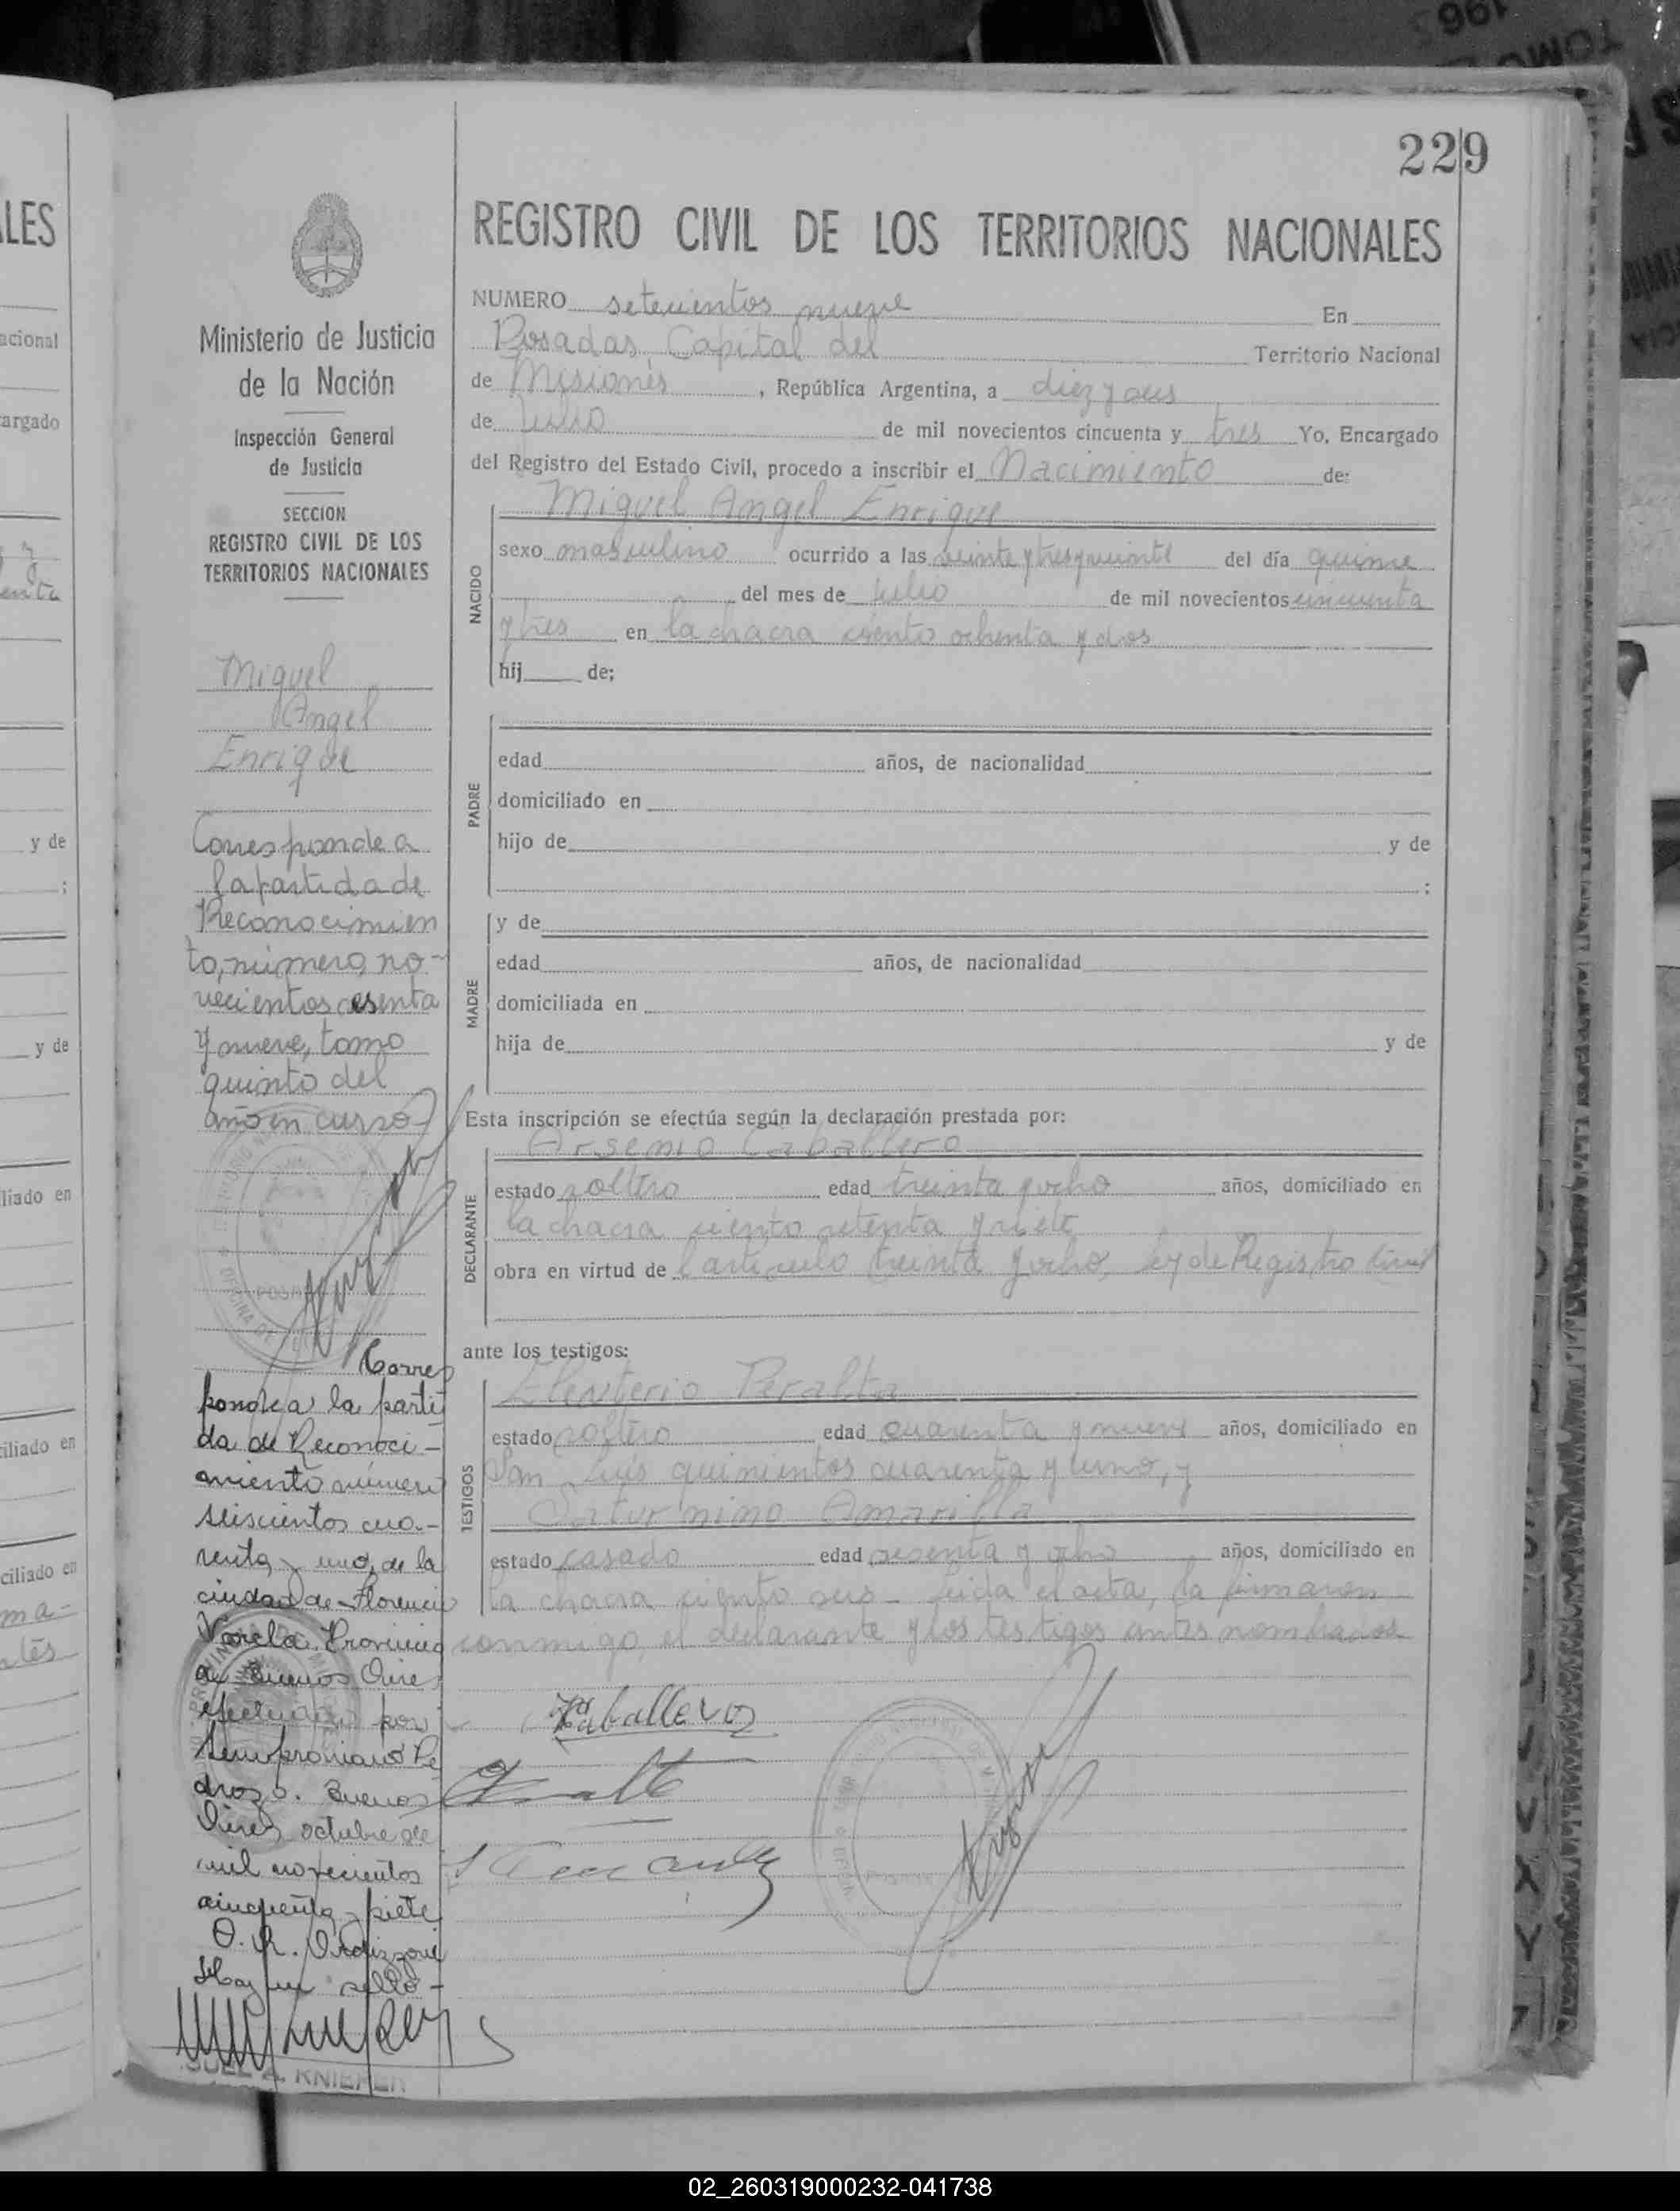 229
REGISTRO CIVIL DE LOS TERRITORIOS NACIONALES
NUMERO setecientos nueve En
Posadas, Capital del Territorio Nacional
de Misiones, República Argentina, a diez y seis
de Julio de mil novecientos cincuenta y tres Yo, Encargado
del Registro del Estado Civil, procedo a inscribir el Nacimiento de:
Miguel Angel Enrique
NACIDO
sexo masculino ocurrido a las veinte y tres y veinte del día quince
del mes de Julio de mil novecientos cincuenta
y tres en la chacra ciento ochenta y dos
hij de;
PADRE
edad años, de nacionalidad
domiciliado en
hijo de y de
;
MADRE
y de
edad años, de nacionalidad
domiciliada en
hija de y de
Esta inscripción se efectúa según la declaración prestada por:
DECLARANTE
Arsenio Caballero
estado soltero edad treinta y ocho años, domiciliado en
la chacra ciento setenta y siete
obra en virtud del artículo treinta y ocho, ley de Registro Civil
ante los testigos:
TESTIGOS
Eleuterio Peralta
estado soltero edad cuarenta y nueve años, domiciliado en
San Luis quinientos cuarenta y uno, y
Saturnino Amarilla
estado casado edad sesenta y ocho años, domiciliado en
la chacra ciento seis - Leida el acta, la firmaron
conmigo, el declarante y los testigos antes nombrados
Caballero
Ministerio de Justicia
de la Nación
Inspección General
de Justicia
SECCION
REGISTRO CIVIL DE LOS
TERRITORIOS NACIONALES
Miguel
Angel
Enrique
Corresponde a
la partida de
Reconocimien
to, número, no-
vecientos sesenta
y nueve, tomo
quinto del
año en curso
Corres
ponde a la parti
da de Reconoci-
miento número
seiscientos cua-
renta y uno, de la
ciudad de Florencio
Varela Provincia
de Buenos Aires
efectuado por
Semproniano Pe
drozo. Buenos
Aires octubre de
mil novecientos
cincuenta y siete
Hay un sello-
KNIEPER
ALES
acional
argado
y de
;
y de
liado en
ciliado en
ciliado en
TOMO
02_260319000232-041738